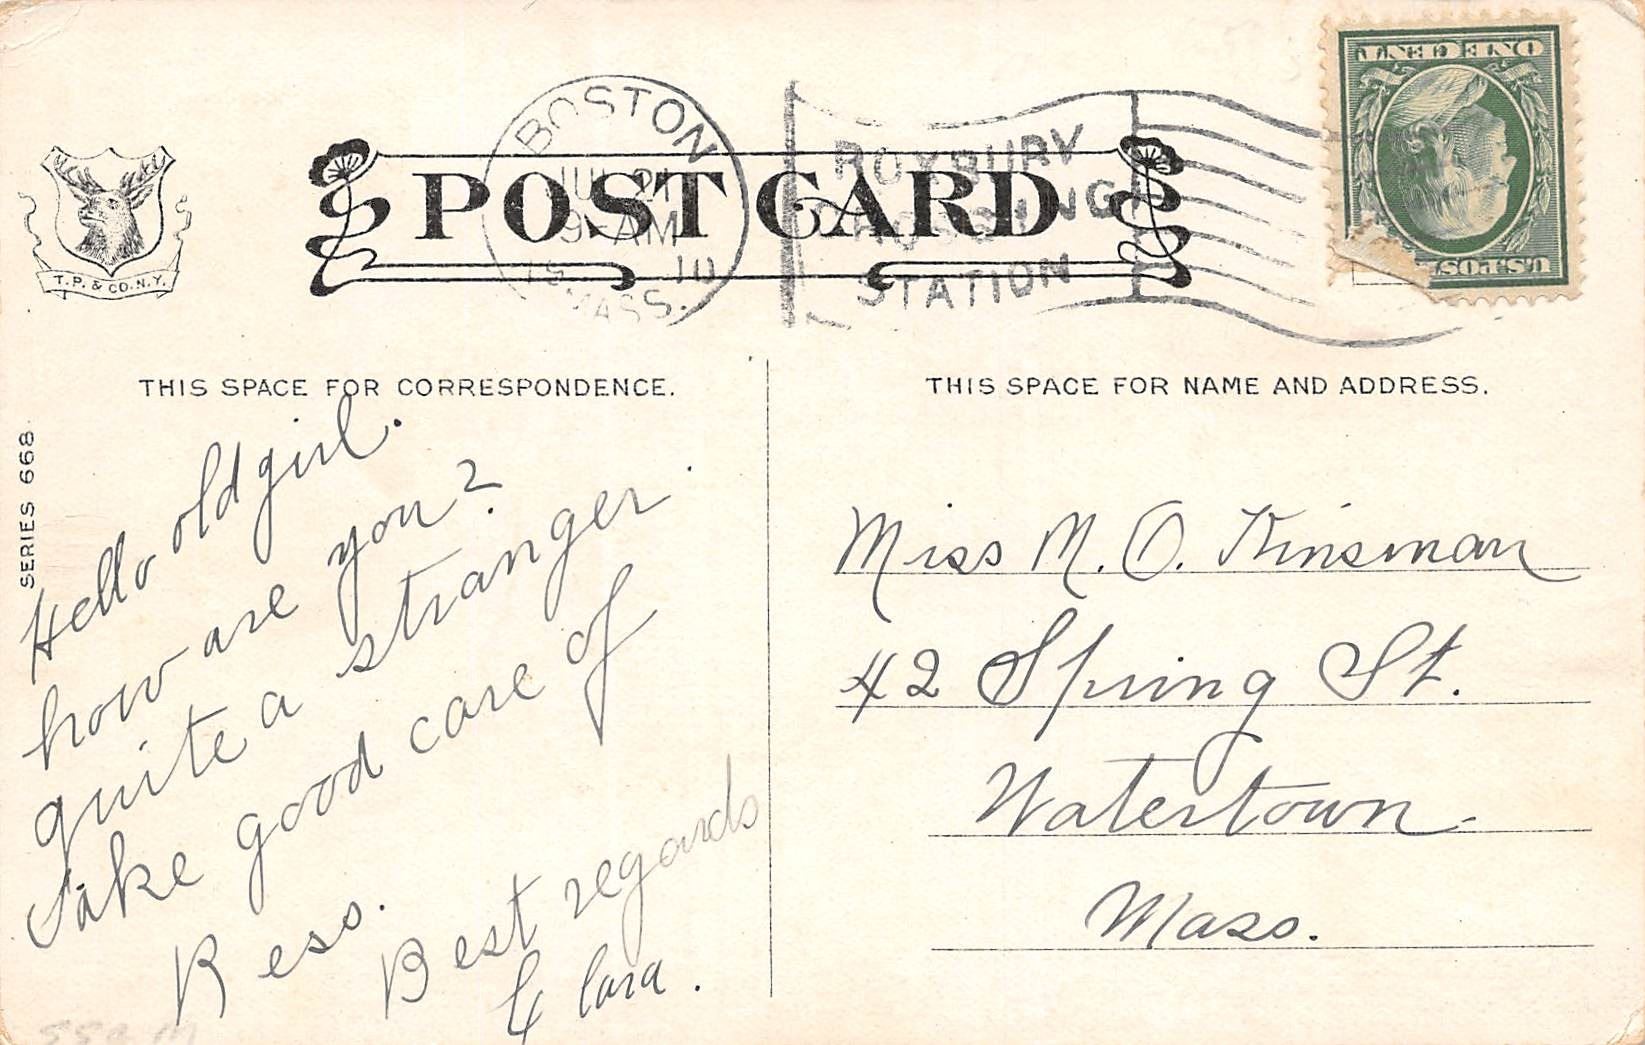 BOSTON
JUL 21
9-AM
10
MASS.
ROXBURY
CROSSING
STATION
ONE CENT
U.S.POS
T.P. & CO. N.Y.
POST CARD
THIS SPACE FOR CORRESPONDENCE.
THIS SPACE FOR NAME AND ADDRESS.
SERIES 668.
Hello old girl.
how are you?
quite a stranger.
Take good care of
Bess.
Best regards
Clara.
Miss M. O. Kinsman
42 Spring St.
Watertown
Mass.